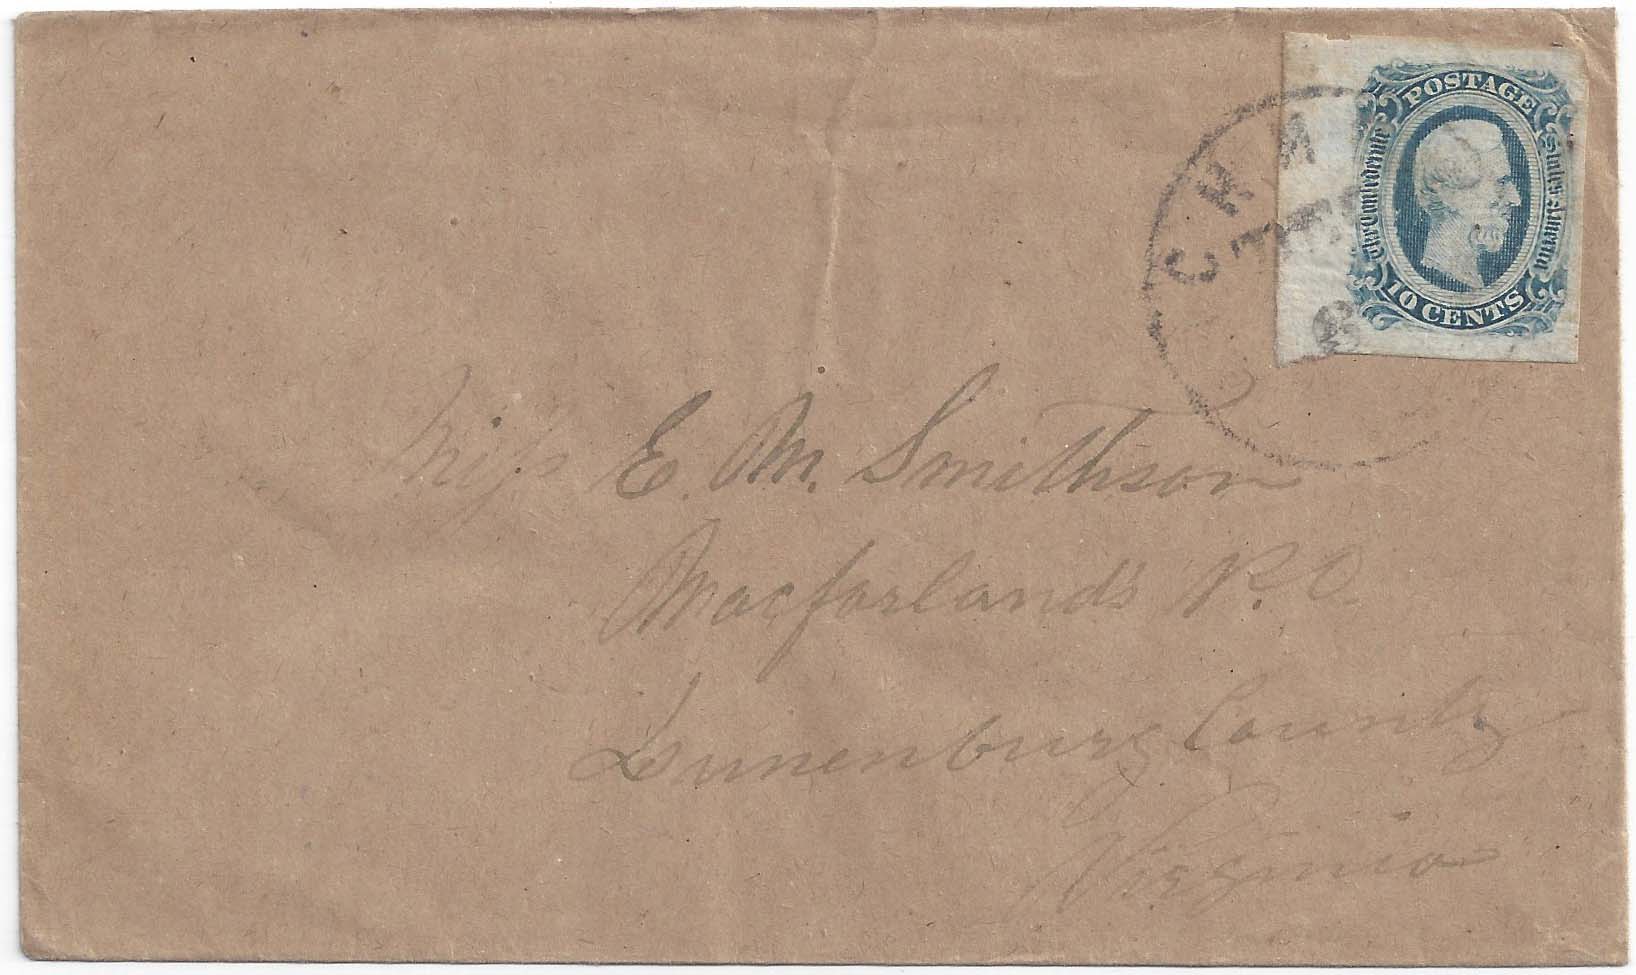 POSTAGE
The Confederate States America
10 CENTS
CHM
Miss E. M. Smithson
Macfarlands P. O.
Lunenburg County
Virginia